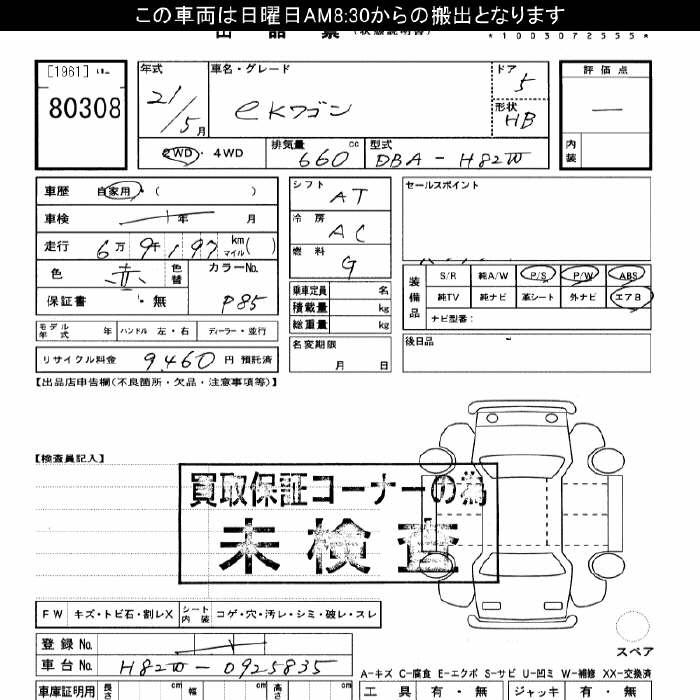 この車両は日曜日AM8:30からの搬出となります
*1003072555*
[1961]
80308
年式 21/5月
車名・グレード eKワゴン
ドア 5
形状 HB
評価点 —
内装
2WD ・ 4WD
排気量 660 cc
型式 DBA - H82W
車歴 自家用・( )
車検 年 月
走行 6万9千197 km マイル( )
色 赤 色替
カラーNo. P85
保証書 ・無
モデル年式 年 ハンドル 左・右 ディーラー・並行
リサイクル料金 9,460 円 預託済
シフト AT
冷房 AC
燃料 G
乗車定員 名
積載量 kg
総重量 kg
名変期限 月 日
セールスポイント
装備品
S/R 純A/W P/S P/W ABS
純TV 純ナビ 革シート 外ナビ エアB
ナビ型番:
後日品
【出品店申告欄(不良箇所・欠品・注意事項等)】
【検査員記入】
買取保証コーナーの為
未検査
FW キズ・トビ石・割レX シート内装 コゲ・穴・汚レ・シミ・破レ・スレ
登録No.
車台No. H82W-0925835
スペア
A-キズ C-腐食 E-エクボ S-サビ U-凹ミ W-補修 XX-交換済
車庫証明用 長さ cm 幅 cm 高さ cm
工具 有・無 ジャッキ 有・無